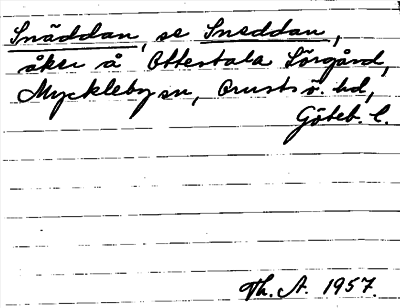 Snäddan, se Sneddan,
åker å Ottestala Sörgård,
Myckleby sn, Orusts ö. hd,
Göteb. l.
Th. A. 1957.